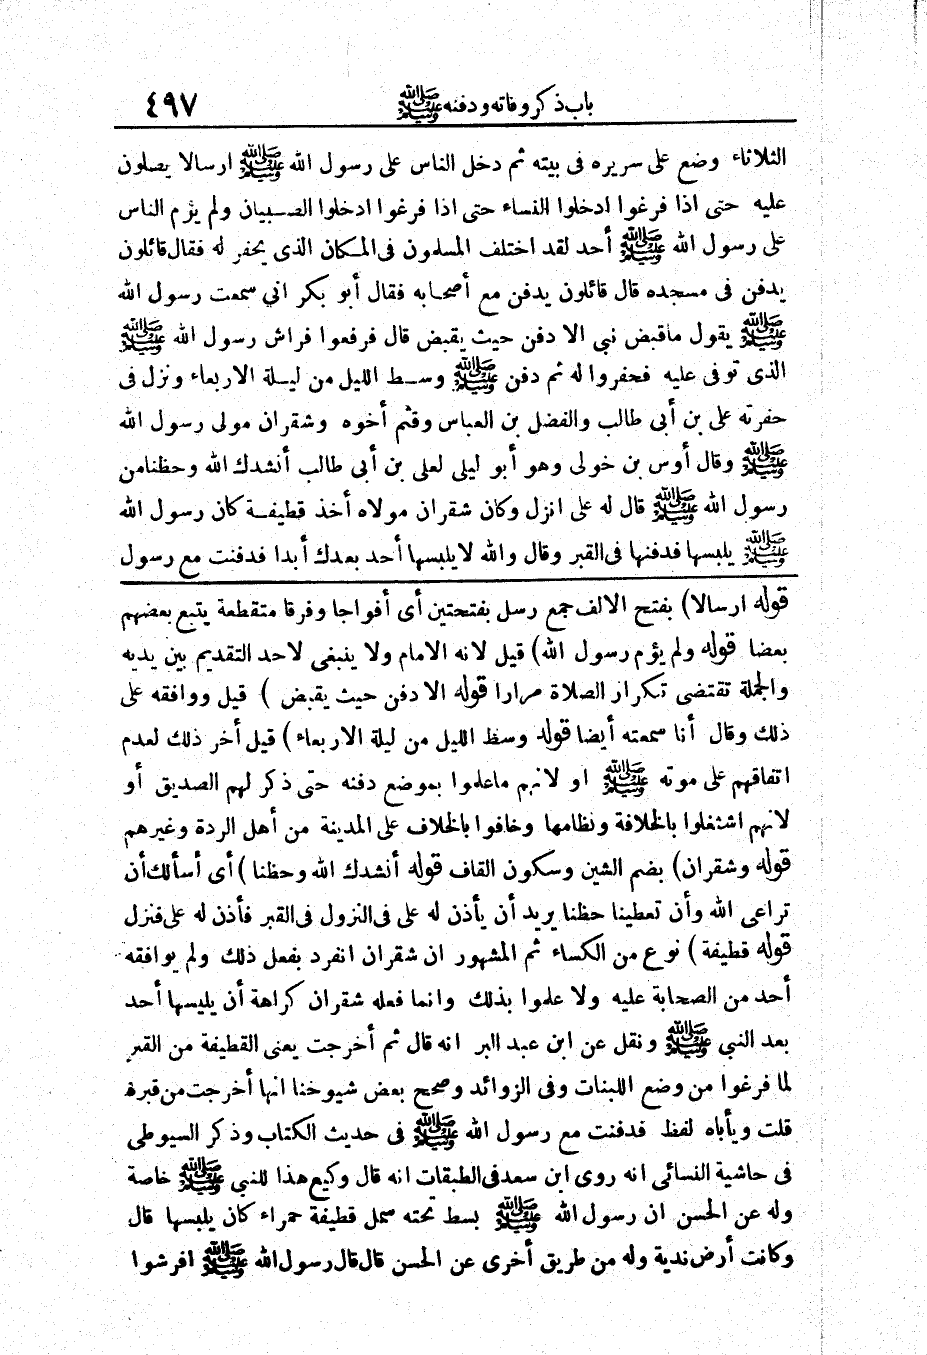 باب ذكر وفاته ودفنه ﷺ ٤٩٧
الثلاثاء وضع على سريره فى بيته ثم دخل الناس على رسول الله ﷺ ارسالا يصلون
عليه حتى اذا فرغوا ادخلوا النساء حتى اذا فرغوا ادخلوا الصبيان ولم يؤم الناس
على رسول الله ﷺ أحد لقد اختلف المسلمون فى المكان الذى يحفر له فقال قائلون
يدفن فى مسجده قال قائلون يدفن مع أصحابه فقال أبو بكر اني سمعت رسول الله
ﷺ يقول ماقبض نبي الا دفن حيث يقبض قال فرفعوا فراش رسول الله ﷺ
الذى توفى عليه فحفروا له ثم دفن ﷺ وسط الليل من ليلة الاربعاء ونزل فى
حفرته على بن أبى طالب والفضل بن العباس وقثم أخوه وشقران مولى رسول الله
ﷺ وقال أوس بن خولى وهو أبو ليلى لعلى بن أبى طالب أنشدك الله وحظنا من
رسول الله ﷺ قال له على انزل وكان شقران مولاه أخذ قطيفة كان رسول الله
ﷺ يلبسها فدفنها فى القبر وقال والله لا يلبسها أحد بعدك أبدا فدفنت مع رسول
قوله ارسالا) بفتح الالف جمع رسل بفتحتين أى أفواجا وفرقا متقطعة يتبع بعضهم
بعضا قوله ولم يؤم رسول الله) قيل لانه الامام ولا ينبغى لاحد التقديم بين يديه
والجملة تقتضى تكرار الصلاة مرارا قوله الا دفن حيث يقبض ) قيل ووافقه على
ذلك وقال أنا سمعته أيضا قوله وسط الليل من ليلة الاربعاء) قيل أخر ذلك لعدم
اتفاقهم على موته ﷺ او لانهم ماعلموا بموضع دفنه حتى ذكر لهم الصديق أو
لانهم اشتغلوا بالخلافة ونظامها وخافوا بالخلاف على المدينة من أهل الردة وغيرهم
قوله وشقران) بضم الشين وسكون القاف قوله أنشدك الله وحظنا) أى أسألك أن
تراعى الله وأن تعطينا حظنا يريد أن يأذن له على فى النزول فى القبر فأذن له على فنزل
قوله قطيفة) نوع من الكساء ثم المشهور ان شقران انفرد بفعل ذلك ولم يوافقه
أحد من الصحابة عليه ولا علموا بذلك وانما فعله شقران كراهة أن يلبسها أحد
بعد النبي ﷺ ونقل عن ابن عبد البر انه قال ثم أخرجت يعنى القطيفة من القبر
لما فرغوا من وضع اللبنات وفى الزوائد وصحح بعض شيوخنا انها أخرجت من قبره
قلت ويأباه لفظ فدفنت مع رسول الله ﷺ فى حديث الكتاب وذكر السيوطى
فى حاشية النسائى انه روى ابن سعد فى الطبقات انه قال وكيع هذا للنبي ﷺ خاصة
وله عن الحسن ان رسول الله ﷺ بسط تحته سمل قطيفة حمراء كان يلبسها قال
وكانت أرض ندية وله من طريق أخرى عن الحسن قال قال رسول الله ﷺ افرشوا